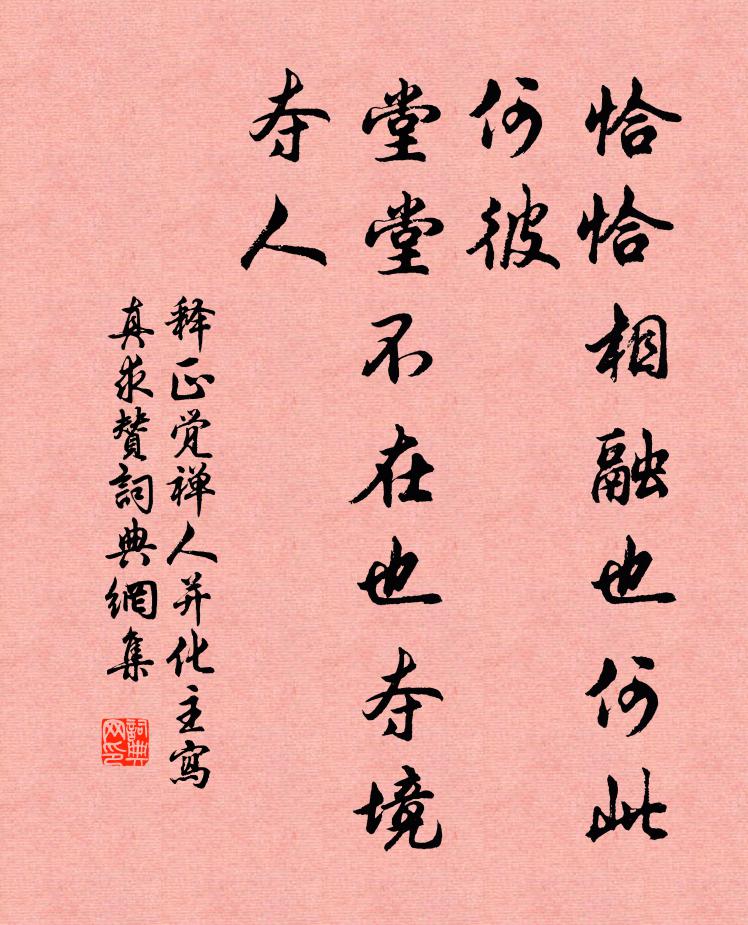 恰恰相融也何此
何彼
堂堂不在也夺境
夺人
释正觉禅人并化主寫
真求贊詞典網集
詞典
网印